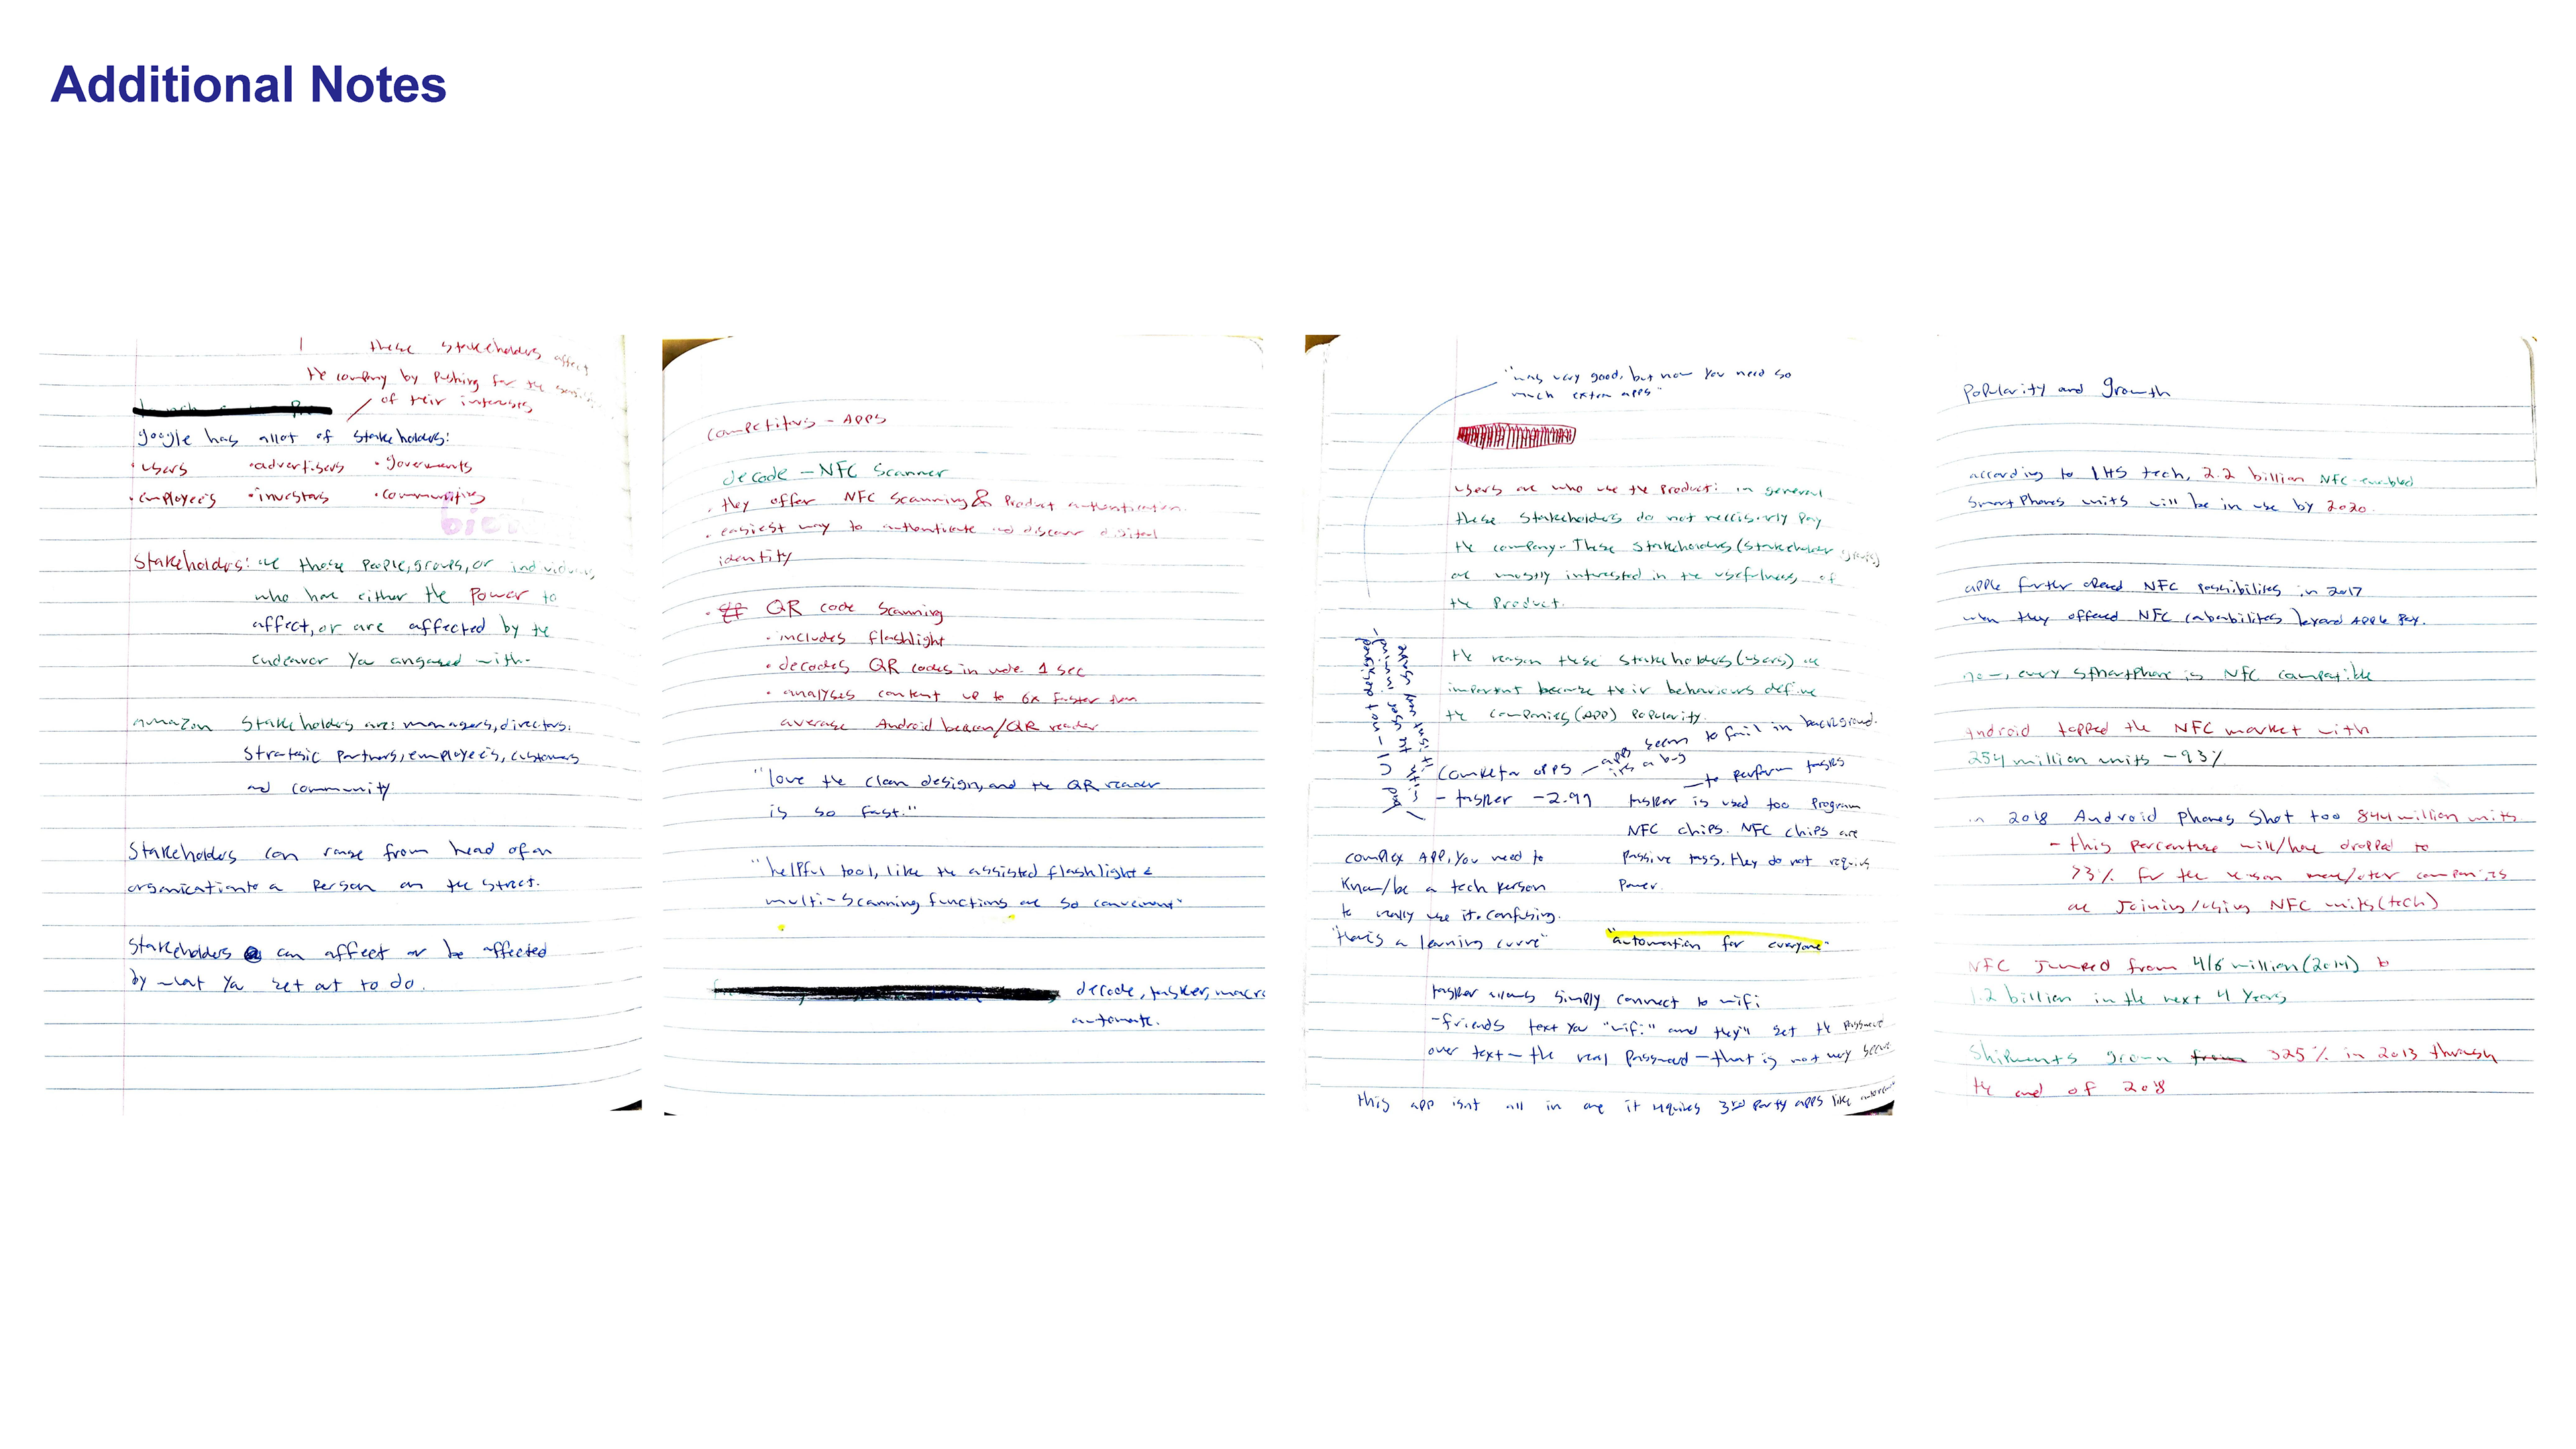 Additional Notes
these stakeholders affect
the company by pushing for the
of their interests
google has allot of stakeholders:
• users • advertisers • governments
• employees • investors • communities
Stakeholders: are those people, groups, or individuals
who have either the power to
affect, or are affected by the
endeavor you engaged with.
amazon Stakeholders are: managers, directors,
Strategic partners, employees, customers
and community
Stakeholders can range from head of an
organization to a person on the street.
Stakeholders can affect or be affected
by what you set out to do.
Competitors - APPS
decode - NFC Scanner
• they offer NFC scanning & Product authentication.
• easiest way to authenticate and discover digital
identity
• QR code scanning
• includes flashlight
• decodes QR codes in under 1 sec
• analyses content up to 6x faster than
average Android beacon/QR reader
"love the clean design, and the QR reader
is so fast."
"helpful tool, like the assisted flashlight &
multi-scanning functions are so convenient"
decode, tasker, macro
automate.
"was very good, but now you need so
much extra apps"
users are who use the product: in general
these stakeholders do not neccisirly pay
the company. These stakeholders (stakeholder groups)
are mostly interested in the usefulness of
the product.
the reason these stakeholders (users) are
important because their behaviours define
the companies (APP) popularity.
apps seem to fail in background.
its a bug
Competitor apps
to perform tasks
- tasker - 2.99 tasker is used too program
NFC chips. NFC chips are
complex APP, you need to passive tags, they do not require
know/be a tech person power.
to really use it. confusing.
"there's a learning curve" "automation for everyone"
tasker allows simply connect to wifi
- friends text you "wifi" and they'll get the password
over text - the real password - that is not very secure
this app isnt all in one it requires 3rd party apps like
Popularity and growth
according to IHS tech, 2.2 billion NFC-enabled
smartphones units will be in use by 2020.
apple further opened NFC possibilities in 2017
when they offered NFC cababilites beyond Apple Pay.
now, every smartphone is NFC compatible
Android topped the NFC market with
254 million units - 93%
in 2018 Android phones shot too 844 million units
- this percentage will/have dropped to
73% for the reason more/other companies
are Joining/using NFC units (tech)
NFC Jumped from 416 million (2014) to
1.2 billion in the next 4 years
Shipments grown 325% in 2013 through
the end of 2018